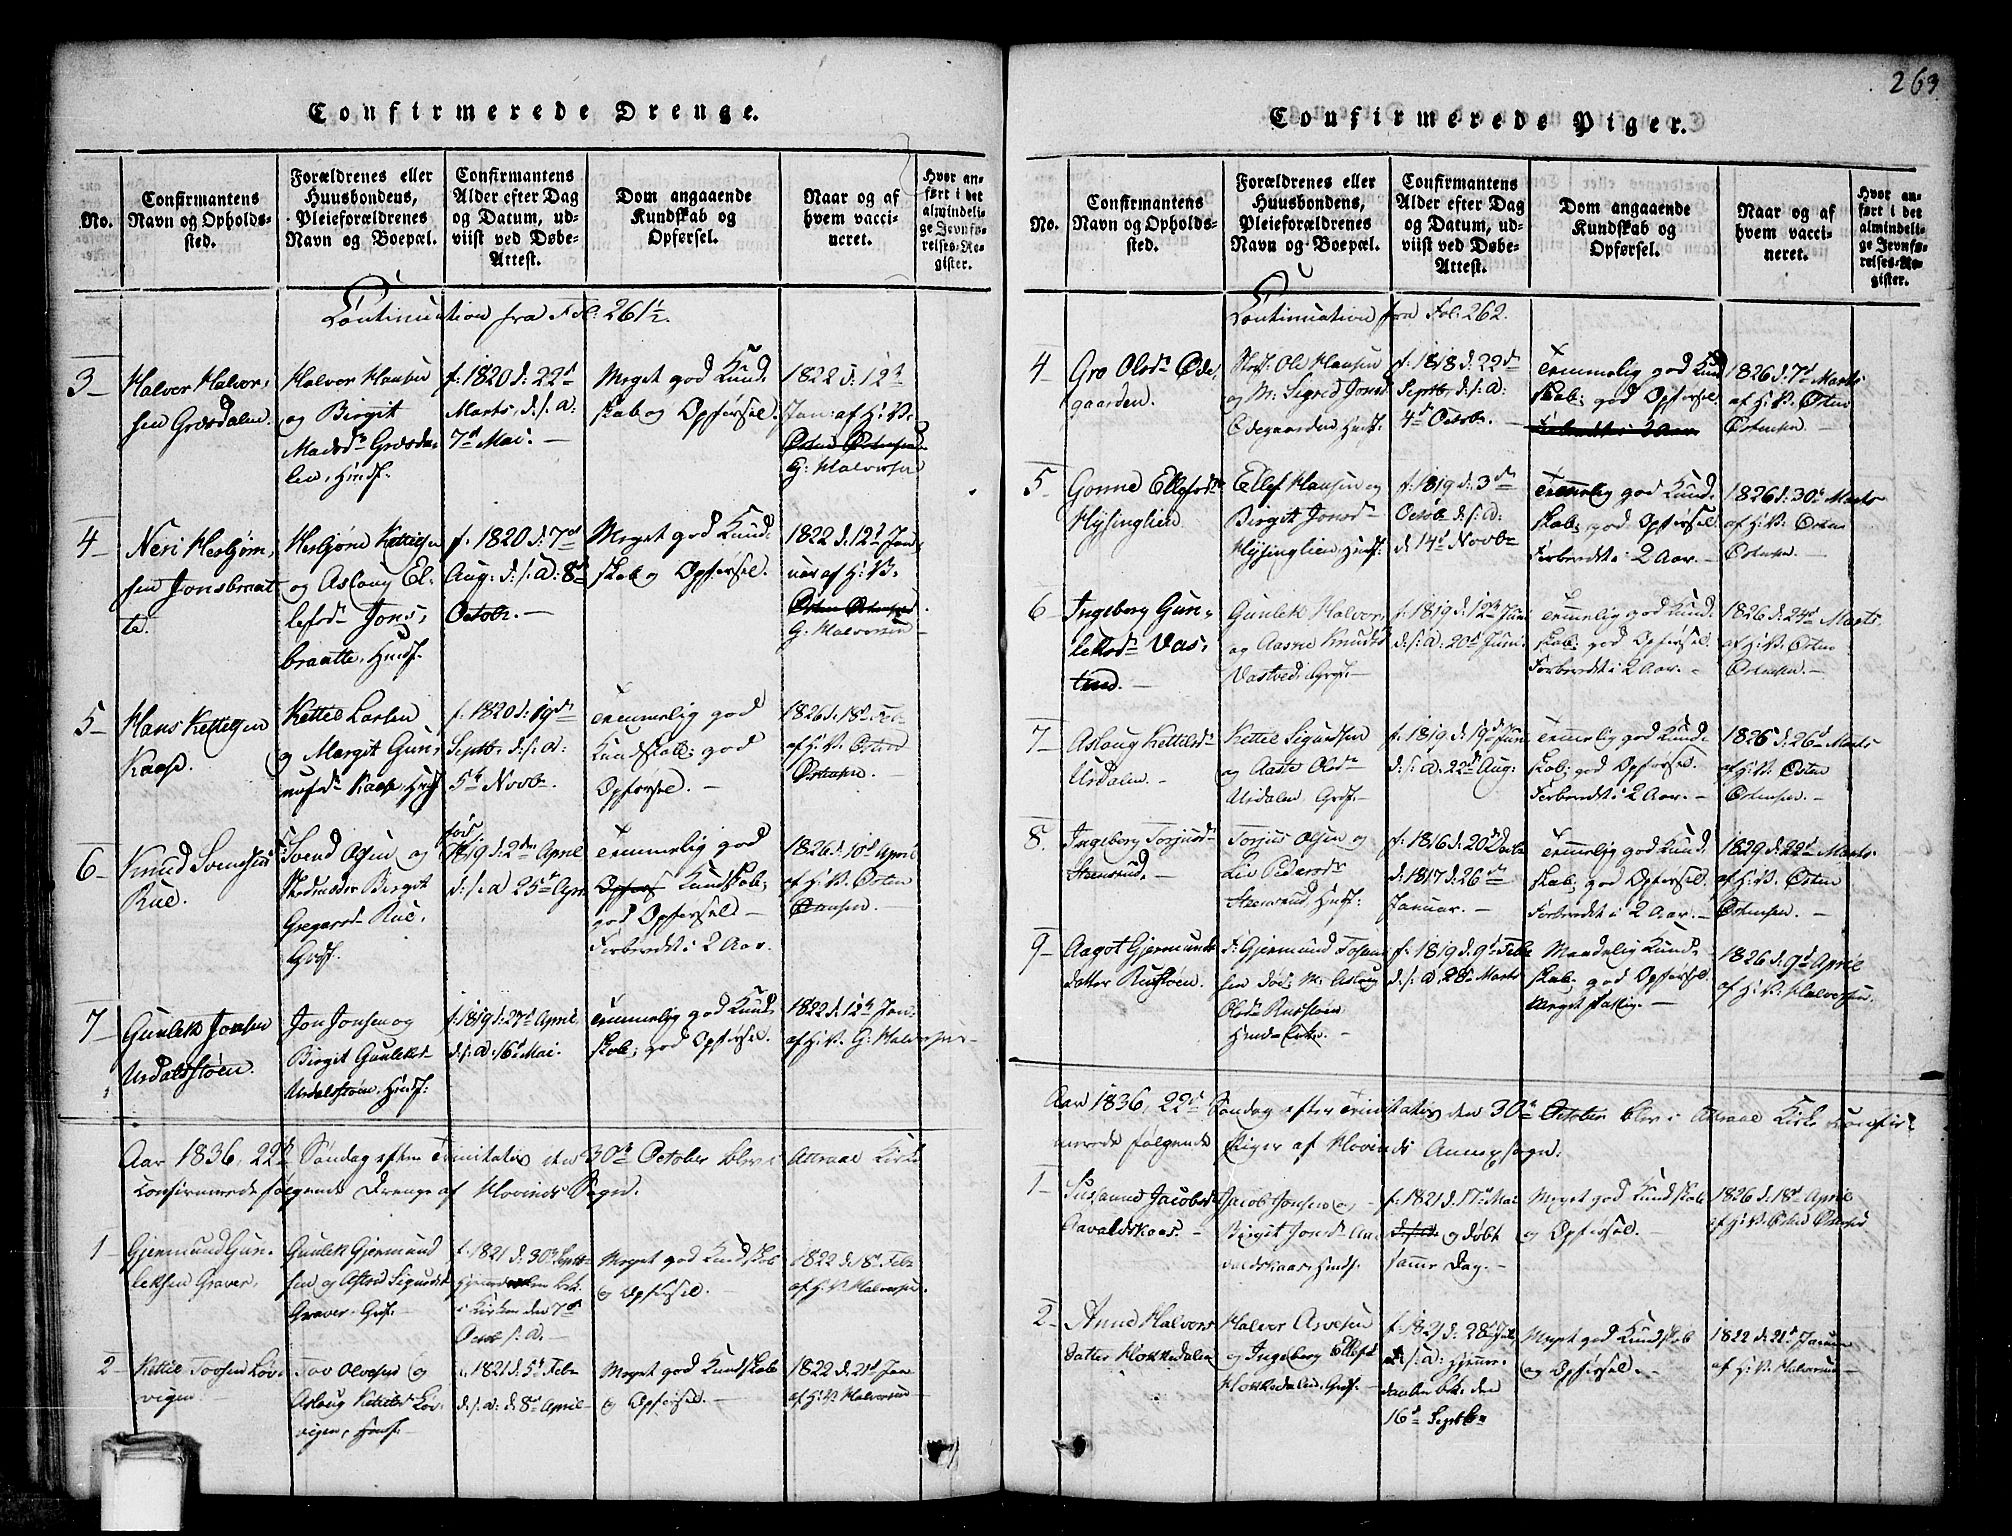 263.
Confirmerede Drenge.
No.
Confirmantens
Navn og Opholds-
sted.
Forældrenes eller
Huusbondens,
Pleieforældrenes
Navn og Boepæl.
Confirmantens
Alder efter Dag
og Datum, ud-
viist ved Døbe-
Attest.
Dom angaaende
Kundskab og
Opførsel.
Naar og af
hvem vacci-
neret.
Hvor an-
ført i det
almindeli-
ge Jevnfø-
relses-Re-
gister.
Continuation fra Fol: 261½.
3
Halvor Halvor-
sen Grosdalen.
Halvor Hansen
og Birgit
Madsdr Grosda-
len, Huusf.
f. 1820 d. 22d
Marts, d. s. a.
7d Mai. —
Meget god Kund-
skab og Opførsel.
1822 d. 12te
Jan: af H. P.
Østen Østensen
G. Halvorsen
4
Neri Herbjørn-
sen Jonsbraat-
te.
Herbjørn Kettilsen
og Aslaug El-
lefsdr Jons-
braatte, Huusf.
f. 1820 d. 7d
Aug: d. s. a: 8d
Octobr. —
Meget god Kund-
skab og Opførsel.
1822 d. 12t Jan-
uar af H. P.
Østen Østensen
G. Halvorsen
5
Hans Kettilsen
Kaase.
Kettil Larsen
og Margit Gun-
nufsdr Kaase, Husf
f. 1820 d. 19de
Septbr, d. s. a:
5te Novbr.
Temmelig god
Kundskab; god
Opførsel. —
1826 d. 18d Feb
af H. P. Østen
Østensen. —
6
Knud Svensen
Rue.
Svend Olsen og
Stedmoder Birgit
Gregarsdr Rue,
Grdf.
1819 d. 2den April
d. s. a 25d Apr.
Temmelig god
Opførs Kundskab;
god Opførsel —
Forberedt i 2 Aar.
1826 d. 10d April
af H. P. Østen
Østensen. —
7
Gunlek Jonsen
Urdalsstøen.
Jon Jonsen og
Birgit Gunleksdr
Urdalsstøen, Huusf:
f. 1819 d. 27d April
d. s. a. 16d Mai.
Temmelig god Kund-
skab; god Opførsel.
1822 d. 12te Jan:
af H. P. G. Halvorsen —
Aar 1836, 22d Søndag efter Trinitatis den 30te October blev i Attraae Kirke
Confirmerede følgende Drenge af Hovinds Sogn.
1
Gjermund Gun-
leksen Graver.
Gunlek Gjermund
sen og Astrid Sigurdsdr
Graver, Grdf.
f. 1821 d. 30te Septbr
i Kirken den 7de
Octbr s. a. —
Meget god Kundskab
og Opførsel. —
1822 d. 18d Febr
af H. P. Halvorsen.
2
Kettil Tovsen Løv-
vigen
Tov Olvesen og
Aslaug Kettilsdr Løv-
vigen, Huusf.
f. 1821 d. 5d Febr
d. s. a: d. 8d April
Meget god Kundskab
og Opførsel. —
1822 d. 21d Jan
af H. P. Halvorsen
Confirmerede Piger.
No.
Confirmantens
Navn og Opholds-
sted.
Forældrenes eller
Huusbondens,
Pleieforældrenes
Navn og Boepæl.
Confirmantens
Alder efter Dag
og Datum, ud-
viist ved Døbe-
Attest.
Dom angaaende
Kundskab og
Opførsel.
Naar og af
hvem vacci-
neret.
Hvor an-
ført i det
almindeli-
ge Jevnfø-
relses-Re-
gister.
Continuation fra Fol. 262.
4
Gro Olsdr Øde-
gaarden.
Ole Hansen
og M. Sigrid Jonsd
Ødegaarden Huusf.
f. 1818 d. 22de
Septbr. d. s. a:
4d Octobr. —
Temmelig god Kund-
skab; god Opførsel.
Forberedt i 2 Aar.
1826 d. 7d Marts
af H. P. Østen
Østensen. —
5
Gonne Ellefsdr
Hysinglien
Ellef Hansen og
Birgit Jonsdr
Hysinglien, Huusf:
f. 1819 d. 3de
Octobr d. s. a.
d. 14d Novbr
Temmelig god Kund-
skab; god Opførsel.
Forberedt i 2 Aar. —
1826 d. 30d Marts
af H. P. Østen
Østensen. —
6
Ingeborg Gun-
leksdr Vas-
tved. —
Gunlek Halvors
og Aasne Knudsd
Vastved,
f. 1819 d. 12te Juni
d. s. a. 20d Juni.
Temmelig god Kund-
skab; god Opførsel.
Forberedt i 2 Aar. —
1826 d. 24d Marts
af H. P. Østen
Østensen. —
7
Aslaug Kettilsdr
Urdalen. —
Kettil Sigurdsen
og Aaste Olsdr
Urdalen Grdf. —
f. 1819 d. 19d Juni
d. s. a. 22d Aug:
Temmelig god Kund-
skab; god Opførsel.
Forberedt i 2 Aar. —
1826 d. 26d Marts
af H. P. Østen
Østensen. —
8.
Ingeborg Torjusdr
Steensrud. —
Torjus Olsen og
Liv Pedersdr
Steensrud, Husf:
f. 1816 d. 20d Decbr
d. 1817 d. 26de
Januar. —
Temmelig god Kund-
skab; god Opførsel.
Forberedt i 2 Aar. —
1829 d. 22d Marts
af H. P. Østen
Østensen. —
9
Aagot Gjermunds
datter Rustøen.
F. Gjermund Tosten-
sen død; M. Aslaug
Olsdr Rustøen,
f. 1819 d. 9d Febr
d. s. a. 28d Marts
Maadelig Kund-
skab; god Opførsel
Meget fattig. —
1826 d. 9d April
af H. P. Halvorsen.
Aar 1836, 22d Søndag efter Trinitatis den 30te October blev i Attraae Kirke Confir-
merede følgende Piger af Hovinds Annexsogn:
1
Susanne Jacobsd
Qavaldskaas. —
Jacob Jonsen og
Birgit Jonsdr
Huusf.
f. 1821 d. 17d Mai
og døbt
samme Dag. —
Meget god Kundskab
og Opførsel. —
1826 d. 18d April
af H. P. Østen Østensen
2
Anne Halvors
datter Klokkedalen
Halvor Asvesen
og Ingeborg Ellefsd
Klokkedalen, Grdf. —
f. 1821 d. 28d
d. s. a: Hjemme-
døbt, bk. den
16d Septbr
Meget god Kundskab
og Opførsel. —
1822 d. 21d Januar
af H. P. Halvorsen —